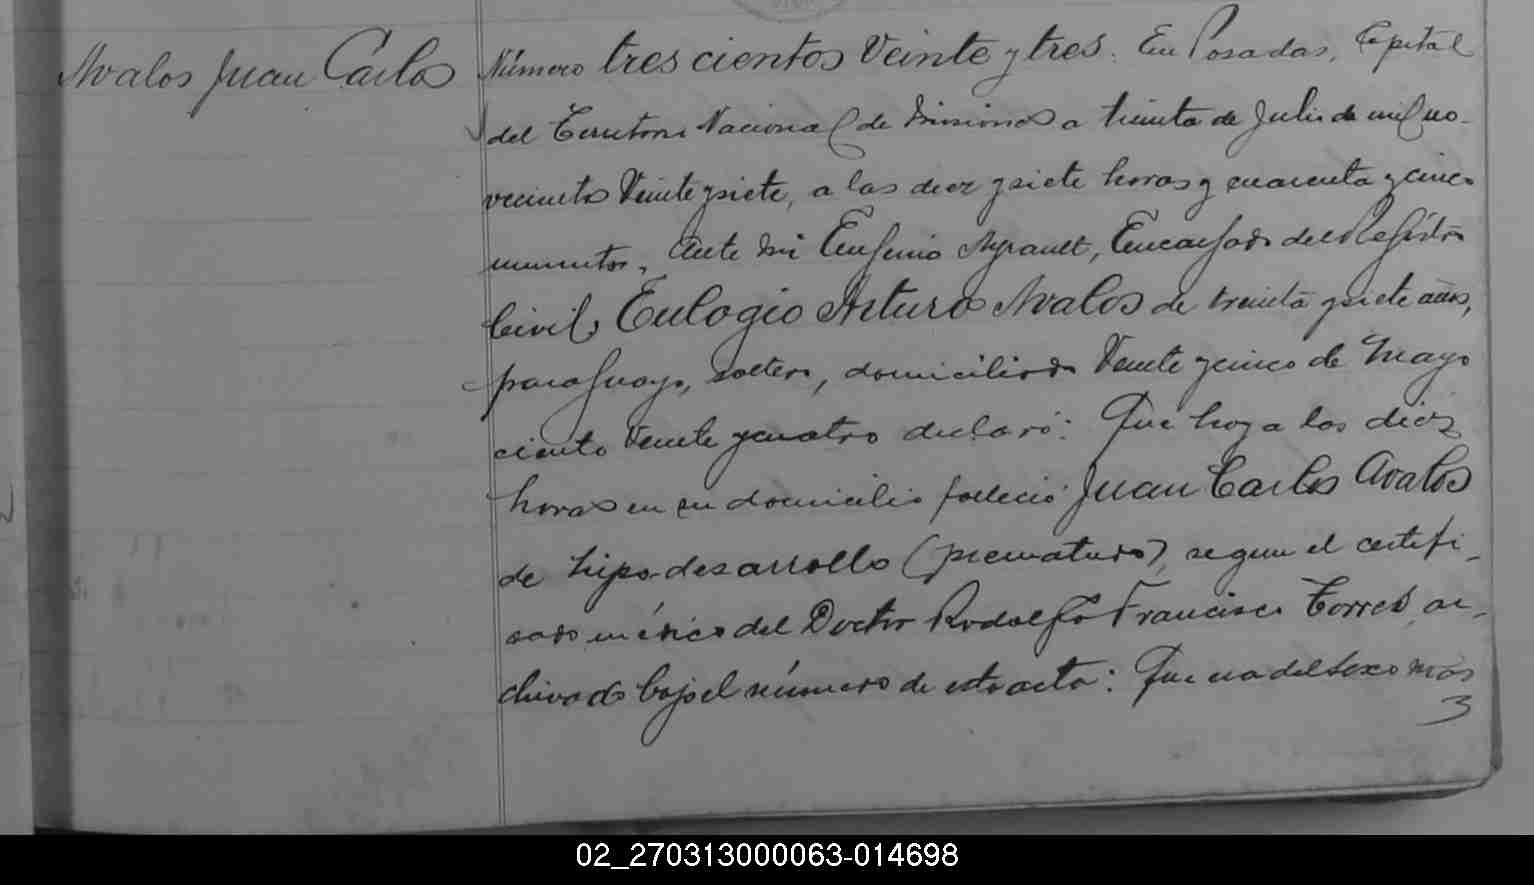 Avalos Juan Carlos
Número tres cientos Veinte y tres. En Posadas, Capital
del Territorio Nacional de Misiones a treinta de Julio de mil no-
vecientos Veinte y siete, a las diez y siete horas y cuarenta y cinco
minutos, Ante mi Eugenio Ayrault, Encargado del Registro
Civil, Eulogio Arturo Avalos de treinta y siete años,
paraguayo, soltero, domiciliado Veinte y cinco de Mayo
ciento Veinte y cuatro declaró: Que hoy a las diez
horas en su domicilio falleció Juan Carlos Avalos
de hipo-desarrollo (prematuro), segun el certifi-
cado médico del Doctor Rodolfo Francisco Torres, ar-
chivado bajo el número de esta acta: Que era del sexo mas
3
02_270313000063-014698